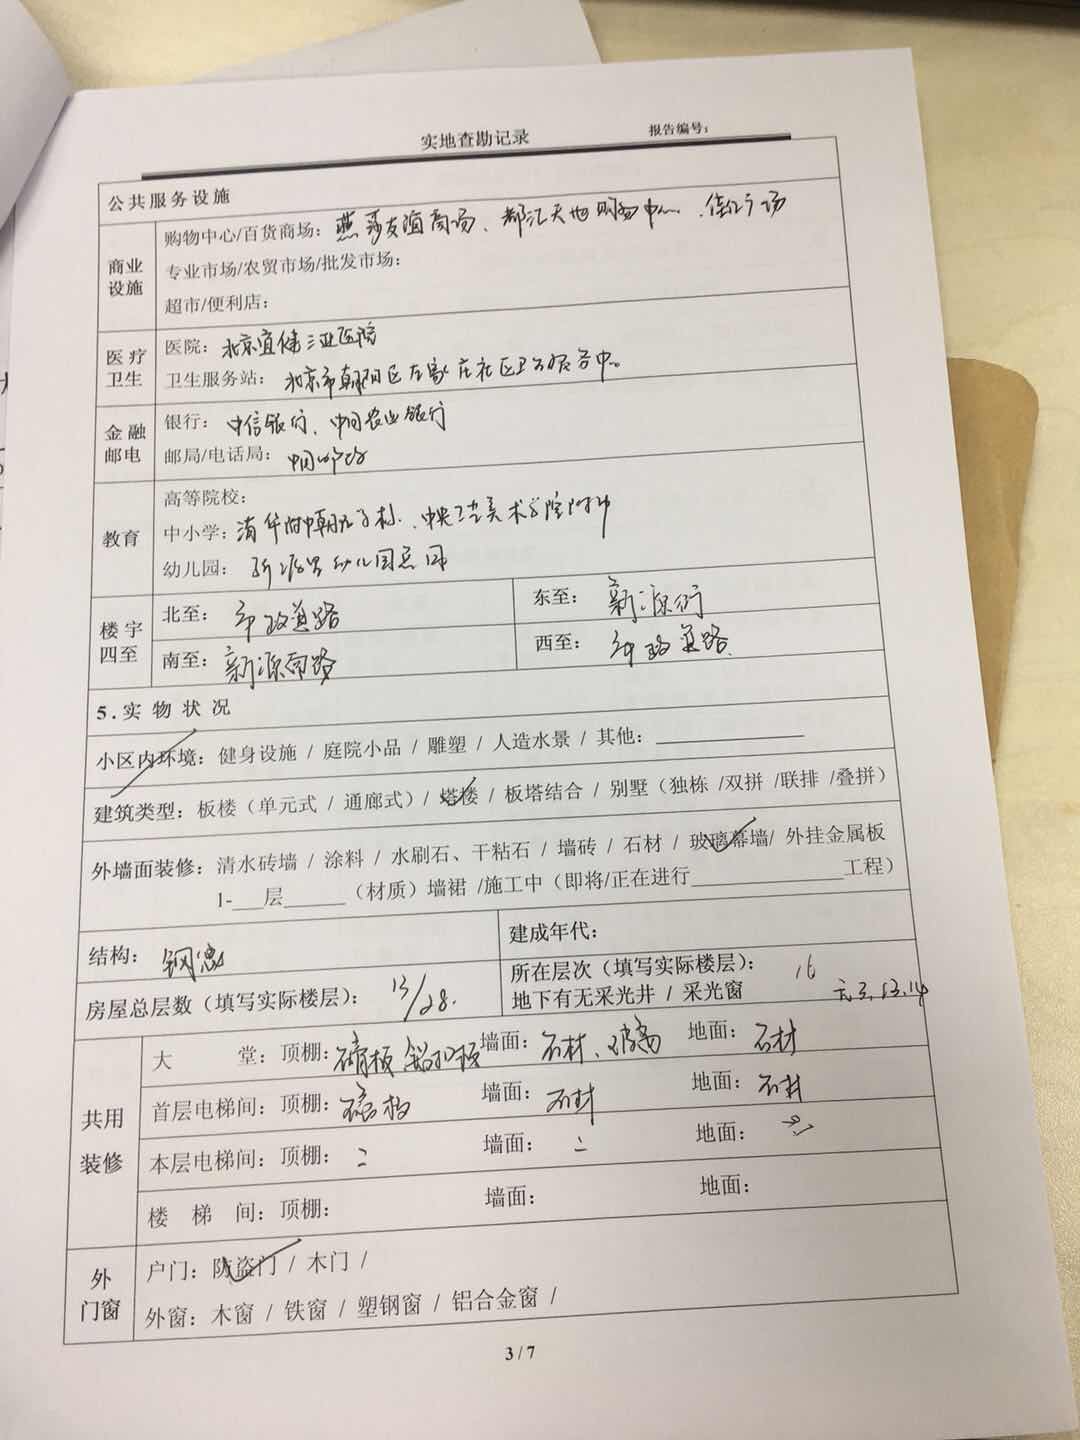 实地查勘记录
报告编号:
公共服务设施
商业设施
购物中心/百货商场: 燕莎友谊商场、都汇天地购物中心、佳亿广场
专业市场/农贸市场/批发市场:
超市/便利店:
医疗卫生
医院: 北京宜健三亚医院
卫生服务站: 北京市朝阳区左家庄社区卫生服务中心
金融邮电
银行: 中信银行、中国农业银行
邮局/电话局: 中国邮政
教育
高等院校:
中小学: 清华附中朝阳学校、中央工艺美术学院附中
幼儿园: 幼儿园总园
楼宇四至
北至: 市政道路
东至: 新源街
南至: 新源南路
西至: 市政道路
5.实物状况
小区内环境: 健身设施 / 庭院小品 / 雕塑 / 人造水景 / 其他:
建筑类型: 板楼(单元式 / 通廊式)/ 塔楼 / 板塔结合 / 别墅(独栋 /双拼 /联排 /叠拼)
外墙面装修: 清水砖墙 / 涂料 / 水刷石、干粘石 / 墙砖 / 石材 / 玻璃幕墙/ 外挂金属板
1-___层______(材质)墙裙 /施工中(即将/正在进行______________工程)
结构: 钢混
建成年代:
房屋总层数(填写实际楼层): /28.
所在层次(填写实际楼层): 16
地下有无采光井 / 采光窗 无3.13.14
共用装修
大堂: 顶棚: 硝板 铝扣板 墙面: 石材、玻璃 地面: 石材
首层电梯间: 顶棚: 墙面: 石材 地面: 石材
本层电梯间: 顶棚: 墙面: 地面:
楼梯间: 顶棚: 墙面: 地面:
外门窗
户门: 防盗门 / 木门 /
外窗: 木窗 / 铁窗 / 塑钢窗 / 铝合金窗 /
3 / 7